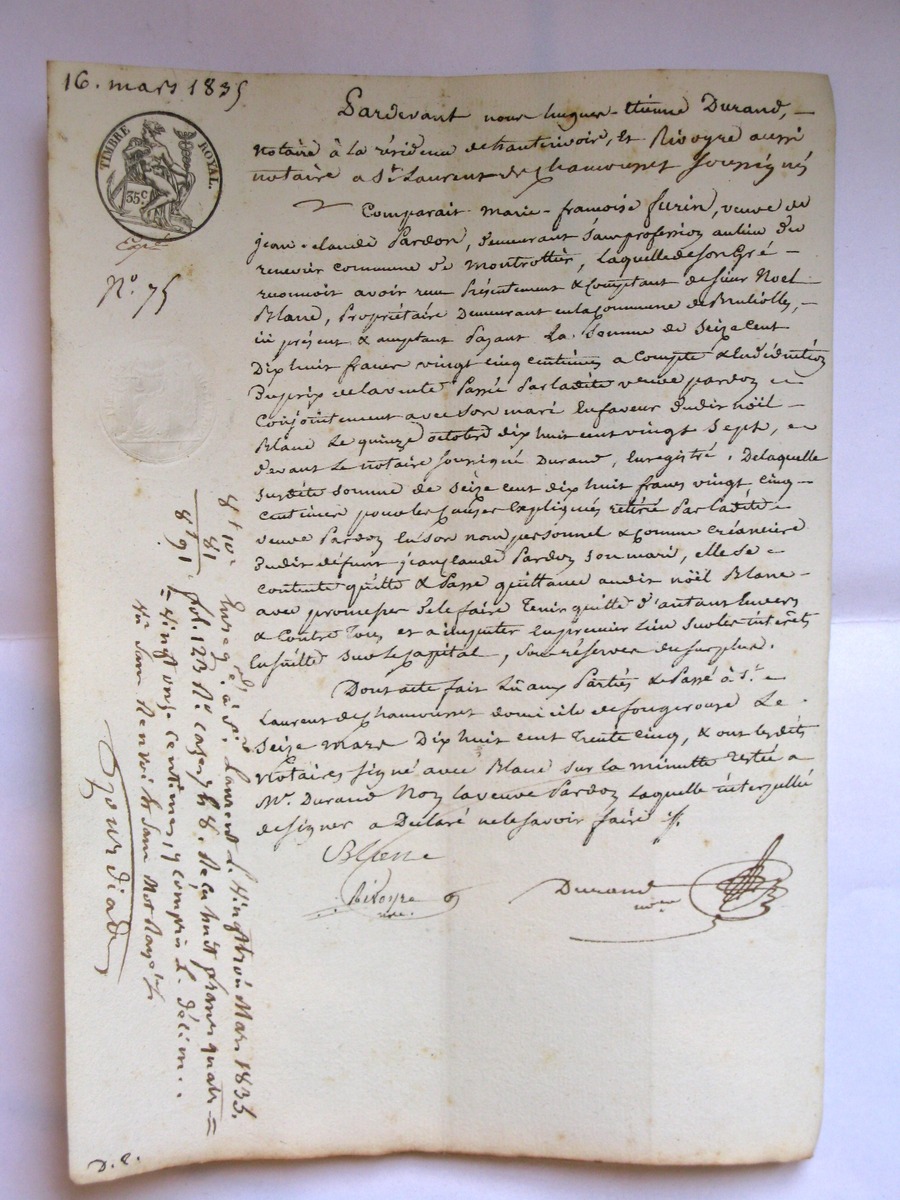 16. mars 1835
TIMBRE ROYAL.
35 C
N.º 75
Pardevant nous hugues-étienne Durand, —
notaire à la résidence de hauterivoire, Et Rivoyre aussi
notaire a St Laurent de Chamousset Soussignés
Comparait marie-françoise furin, veuve de
jean-claude Pardon, demeurant sans profession au lieu du
commune de Montrottier, Laquelle de son Gré —
reconnoit avoir reçu Présentement & Comptant de Sieur Noël
Blanc, Propriétaire Demeurant en la Commune de Brullioles, —
ici présent & acceptant Payant La Somme de Seize Cent
Dix huit francs vingt cinq centimes a Compte & en déduction
Du prix de la vente Passée Par ladite veuve pardon
Conjointement avec Son mari En faveur Dudit noël —
Blanc Le quinze octobre dix huit cent vingt Sept,
devant Le notaire Soussigné Durand, Enregistré. De laquelle
Susdite Somme de Seize cent dix huit francs vingt Cinq —
Centimes pour les Causes Expliquées retirée Par ladite
veuve Pardon En son nom personnel & Comme Créancière
Dudit défunt jean claude Pardon Son mari, elle Se
Contente quitte & Passe quittance audit noël Blanc —
avec promesse de le faire Tenir quitte d'autant Envers
& Contre Tous et a imputer En premier Lieu Sur les intérêts
Ensuitte Sur Le Capital, Sous réserves du Surplus.
Dont acte fait Lu aux Parties & Passé à St
Laurent de Chamousset domicile de fougerouse Le
Seize mars Dix huit cent Trente Cinq, & ont lesdits
Notaires Signé avec Blanc Sur la minutte restée a
Mr. Durand Non la veuve Pardon Laquelle interpellée
de signer a Déclaré ne le Savoir faire
Blanc
Rivoyre
nre
Durand
8f 10c
81
8f 91
Enreg. à St. Laurent Le Vingt trois Mars 1835.
fol. 123 Re. case 7 & 8. Reçu huit francs quatre =
= vingt onze centimes y compris le décime.
Gourdiat
D. E.